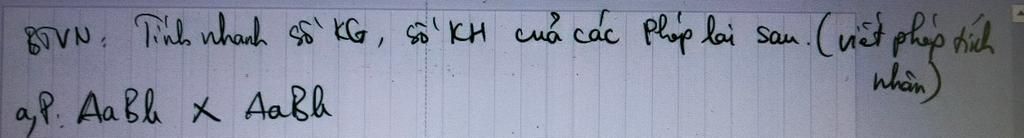 BTVN: Tính nhanh số KG, số KH cuả các phép lai sau. (viết phép tính nhân)
a, P: AaBb × AaBb